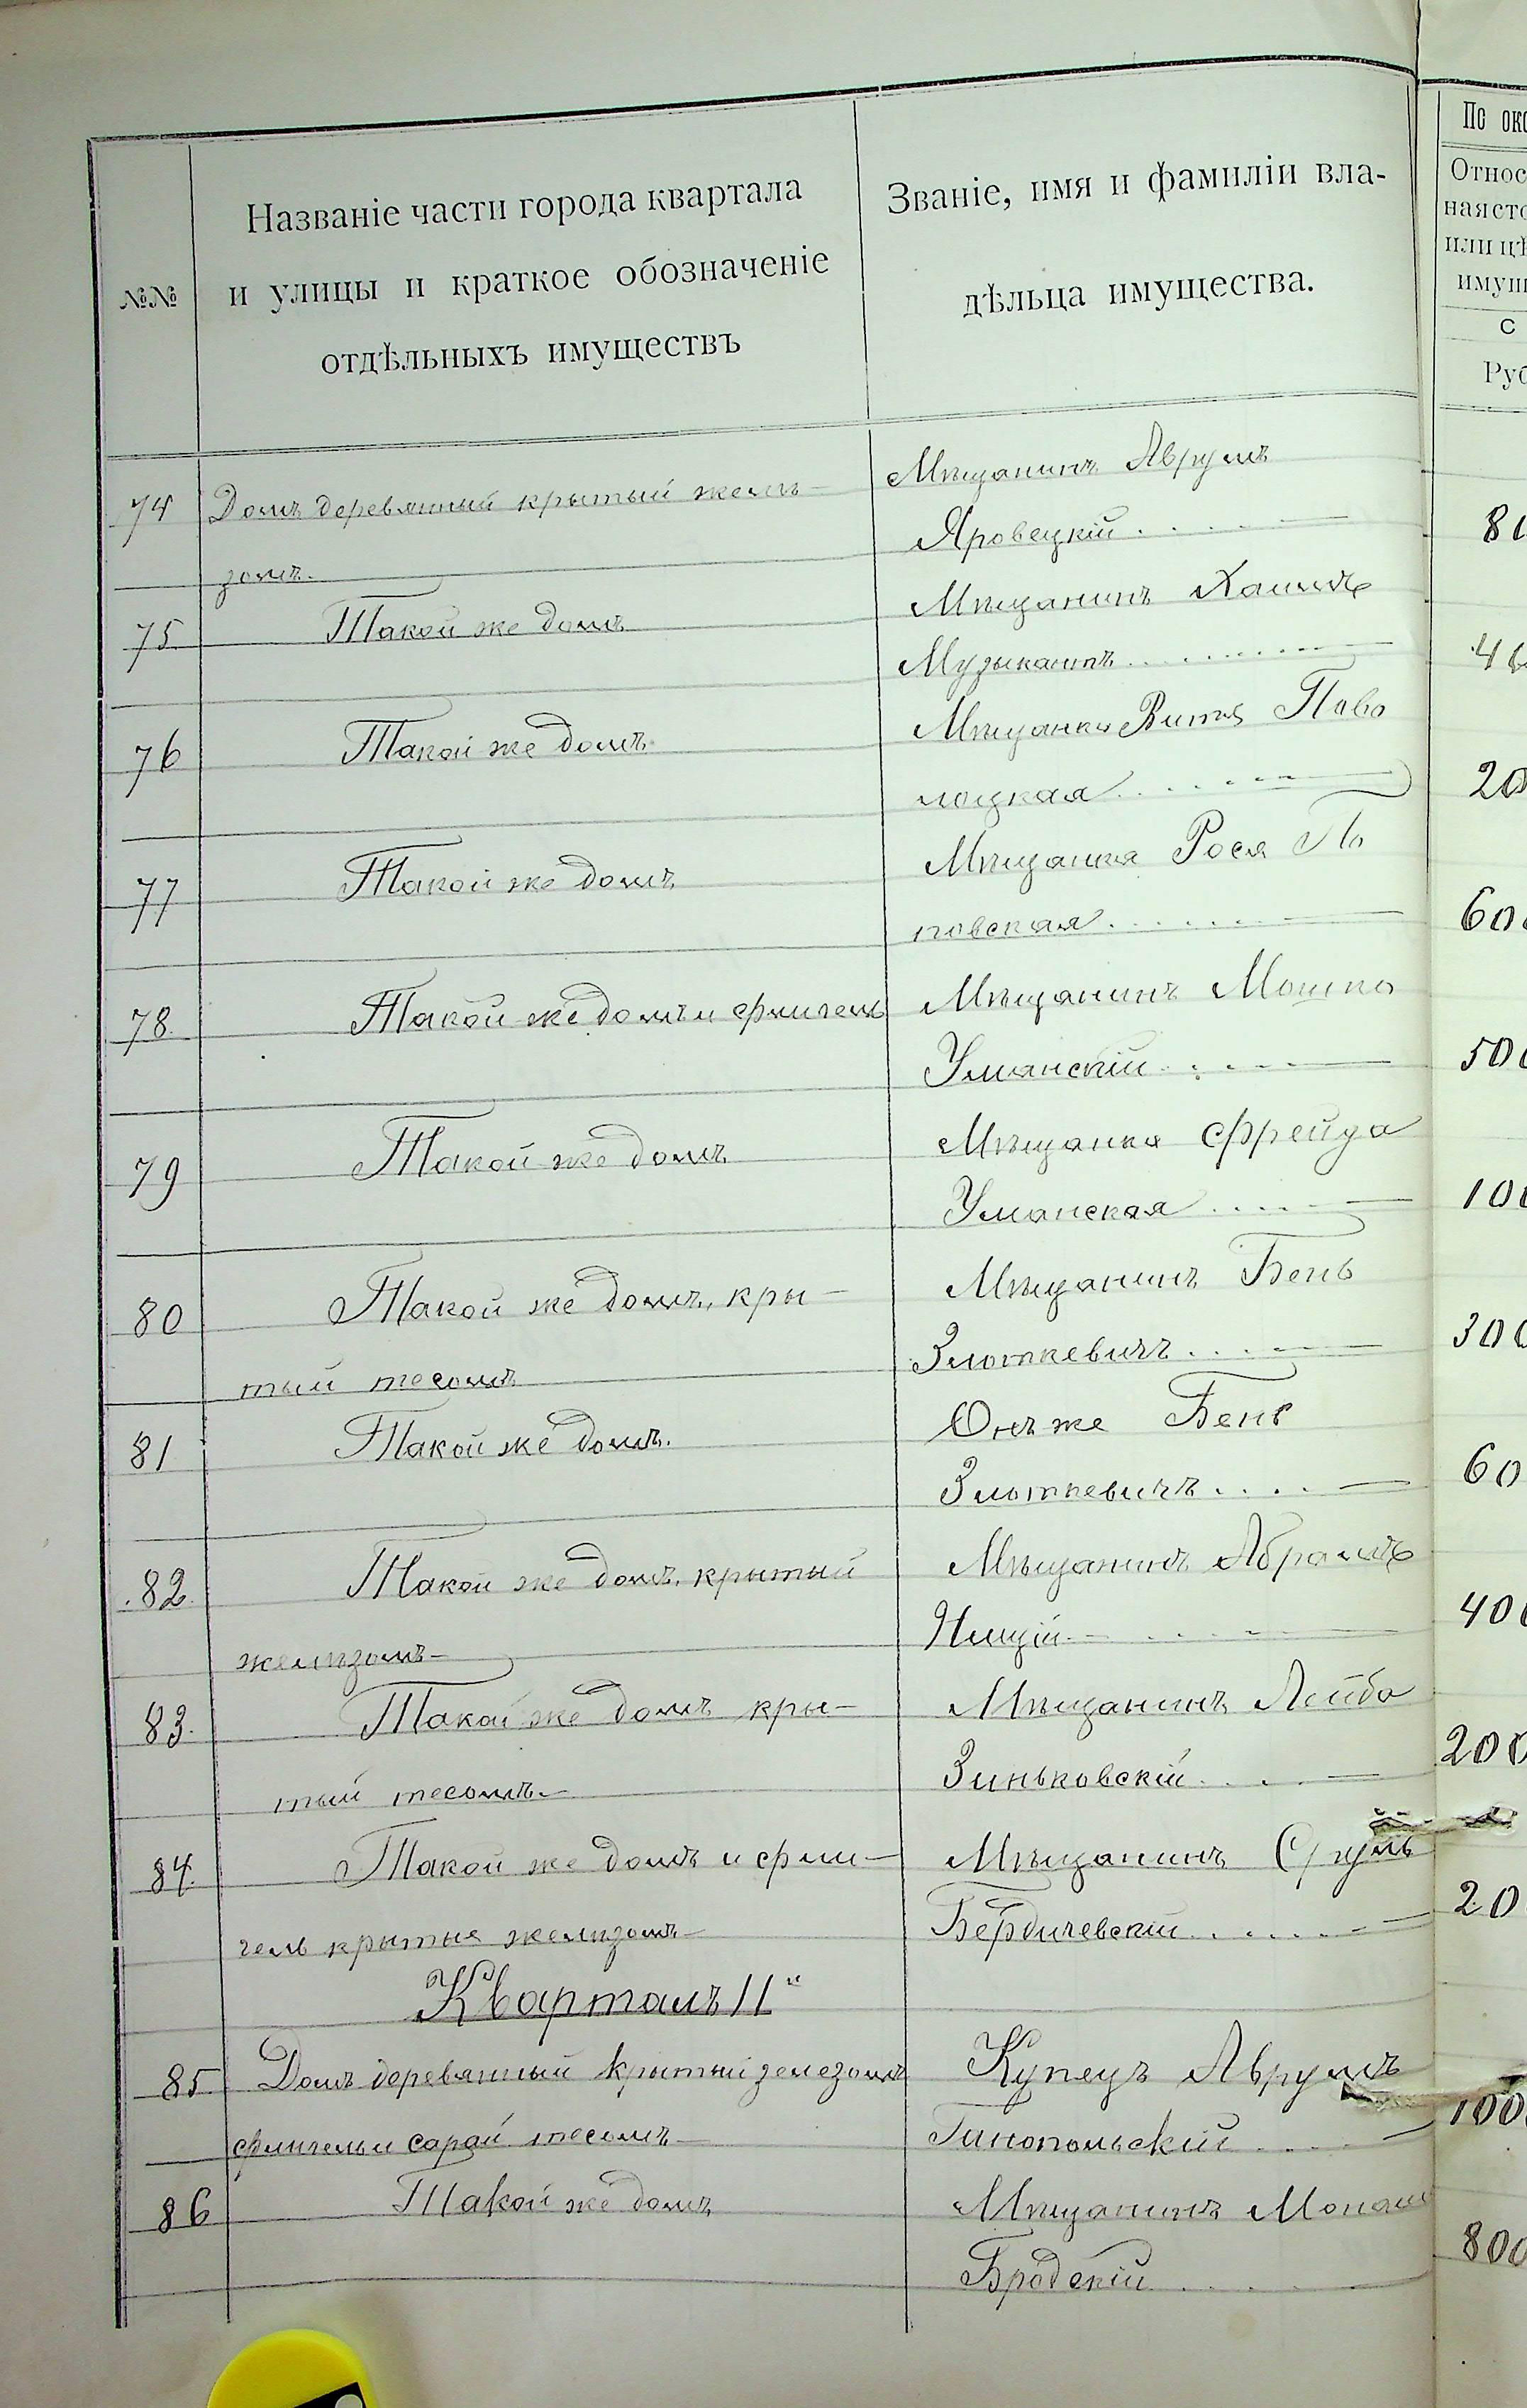 Названіе части города квартала
и улицы и краткое обозначеніе
отдѣльныхъ имуществъ
№№
Званіе, имя и фамиліи вла-
дѣльца имущества.
По око
Относ
наясто
или цѣ
имущ
с
Руб
74 Домъ деревянный крытый желѣ- Мѣщанинъ Аврумъ
зомъ. Яровецкій
75 Такой же домъ Мѣщанинъ Хаимъ
Музыкантъ
76 Такой же домъ Мѣщанка Паво
лоцкая 20
77 Такой же домъ Мѣщанка Рося По
повская 60
78 Такой же домъ и флигель Мѣщанинъ Мошко
Уманскій 500
79 Такой же домъ Мѣщанка Фрейда
Уманская 100
80 Такой же домъ, кры- Мѣщанинъ Бень
тый тесомъ Злоткевичъ 300
81 Такой же домъ. Онъ же Бень
Злоткевичъ 60
82 Такой же домъ, крытый Мѣщанинъ Абрамъ
желѣзомъ- 400
83. Такой же домъ кры- Мѣщанинъ Лейба
тый тесомъ.- Зиньковскій 200
84. Такой же домъ и фли- Мѣщанинъ Сруль
гель крытые желѣзомъ- Бердичевскій 20
Кварталъ 11"
85 Домъ деревянный крытый зелезомъ Купецъ Аврумъ
флигель и сарай тесомъ- Тинопольскій 100
86 Такой же домъ Мѣщанинъ
Бродскій 800